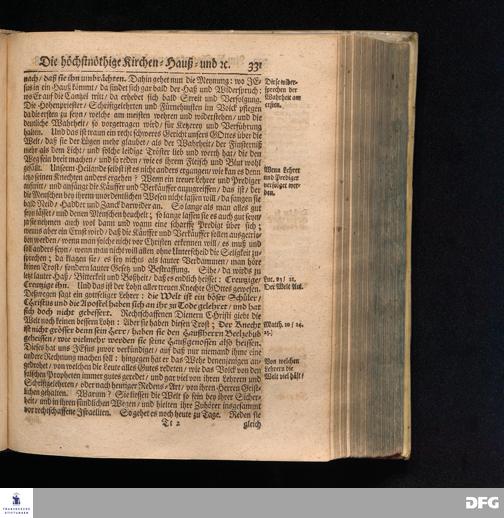 Die höchstnöthige Kirchen-Hauß- und ꝛc. 331
nach/ daß sie ihn umbrächten. Dahin gehet nun die Meynung: wo JE-
sus in ein Hauß kömmt/ da findet sich gar bald der Haß und Widerspruch:
wo Er auf die Cantzel tritt/ da erhebet sich bald Streit und Verfolgung.
Die Hohenpriester/ Schrifftgelehrten und Fürnehmsten im Volck pflegen
da die ersten zu seyn/ welche am meisten wehren und widerstehen/ und die
deutliche Wahrheit/ so vorgetragen wird/ für Ketzerey und Verführung
halten. Und das ist traun ein recht schweres Gericht unsers GOttes über die
Welt/ daß sie der Lügen mehr glaubet/ als der Wahrheit/ der Finsterniß
mehr als dem Licht/ und solche leidige Tröster lieb und werth hat/ die den
Weg fein breit machen/ und so reden/ wie es ihrem Fleisch und Blut wohl
gefällt. Unserm Heilande selbst ist es nicht anders ergangen/ wie kan es denn
itzo seinen Knechten anders ergehen? Wenn ein treuer Lehrer und Prediger
auftritt/ und anfängt die Käuffer und Verkäuffer anzugreiffen/ das ist/ der
die Menschen bey ihrem unordentlichen Wesen nicht lassen will/ da fangen sie
bald Neid/ Hadder und Zanck darwider an. So lange als man alles gut
seyn lässet/ und denen Menschen heuchelt; so lange lassen sie es auch gut seyn/
ja sie nehmen auch wol dann und wann eine scharffe Predigt über sich;
wenns aber ein Ernst wird/ daß die Käuffer und Verkäuffer sollen ausgetrie-
ben werden/ wenn man solche nicht vor Christen erkennen will/ es muß und
soll anders seyn/ wenn man nicht will allen ohne Unterscheid die Seligkeit zu-
sprechen; da klagen sie/ es sey nichts als lauter Verdammen/ man höre
keinen Trost/ sondern lauter Gesetz und Bestraffung. Sihe/ da wirds zu
letzt lauter Haß/ Bitterkeit und Boßheit/ daß es endlich heisset: Creutzige/
Creutzige ihn. Und das ist der Lohn aller treuen Knechte GOttes gewesen.
Deßwegen sagt ein gottseliger Lehrer: die Welt ist ein böser Schüler/
Christus und die Apostel haben sich an ihr zu Tode gelehret/ und hat
sich doch nicht gebessert. Rechtschaffenen Dienern Christi giebt die
Welt noch keinen bessern Lohn: Aber sie haben diesen Trost; Der Knecht
ist nicht grösser denn sein Herr/ haben sie den Haußherrn Beelzebub
geheissen/ wie vielmehr werden sie seine Haußgenossen also heissen.
Dieses hat uns JEsus zuvor verkündiget/ auf daß nur niemand ihme eine
andere Rechnung machen soll: hingegen hat er das Wehe denenjenigen an-
gedrohet/ von welchen die Leute alles Gutes redeten/ wie das Volck von den
falschen Propheten immer gutes geredet/ und gar viel von ihren Lehrern und
Schrifftgelehrten/ oder nach heutiger Redens-Art/ von ihren Herren Geist-
lichen gehalten. Warum? Sie liessen die Welt so sein bey ihrer Sicher-
heit/ und in ihren sündlichen Wegen/ und hielten ihre Zuhörer ingesammt
vor rechtschaffene Israeliten. So gehet es noch heute zu Tage. Reden sie
Tt 2 gleich
Diese wider-
sprechen der
Wahrheit am
ersten.
Wenn Lehrer
und Prediger
verfolget wer-
den.
Luc. 23/ 21.
Der Welt Art.
Matth. 10/ 24.
25.
Von welchen
Lehrern die
Welt viel hält/
FRANCKESCHE
STIFTUNGEN
DFG